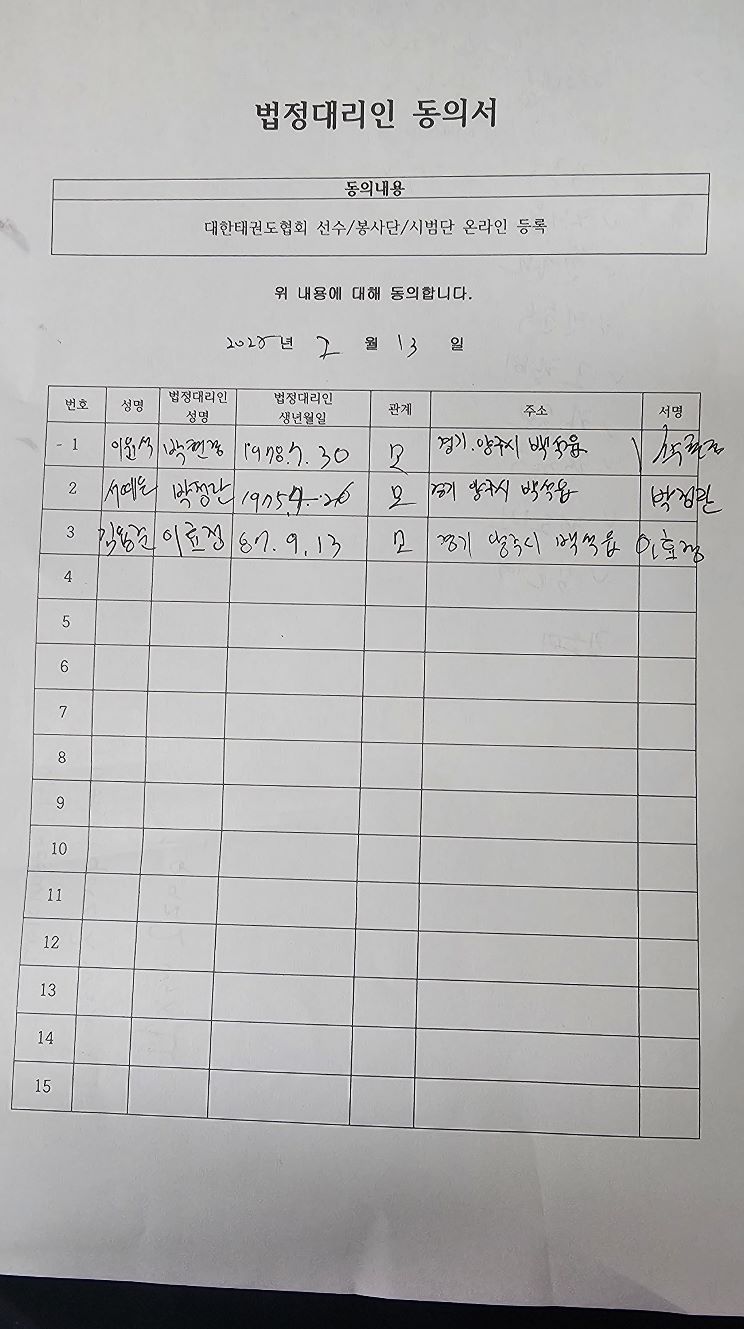 법정대리인 동의서
동의내용
대한태권도협회 선수/봉사단/시범단 온라인 등록
위 내용에 대해 동의합니다.
년 2 월 13 일
번호 성명 법정대리인 성명 법정대리인 생년월일 관계 주소 서명
1 이윤석 박현정 1978.7.30 모 경기.양주시 백석읍
2 서예은 박정란 1975 26 모 경기 양주시 백석읍 박정란
3 이효정 87.9.13 모 경기 양주시 백석읍 이효정
4
5
6
7
8
9
10
11
12
13
14
15